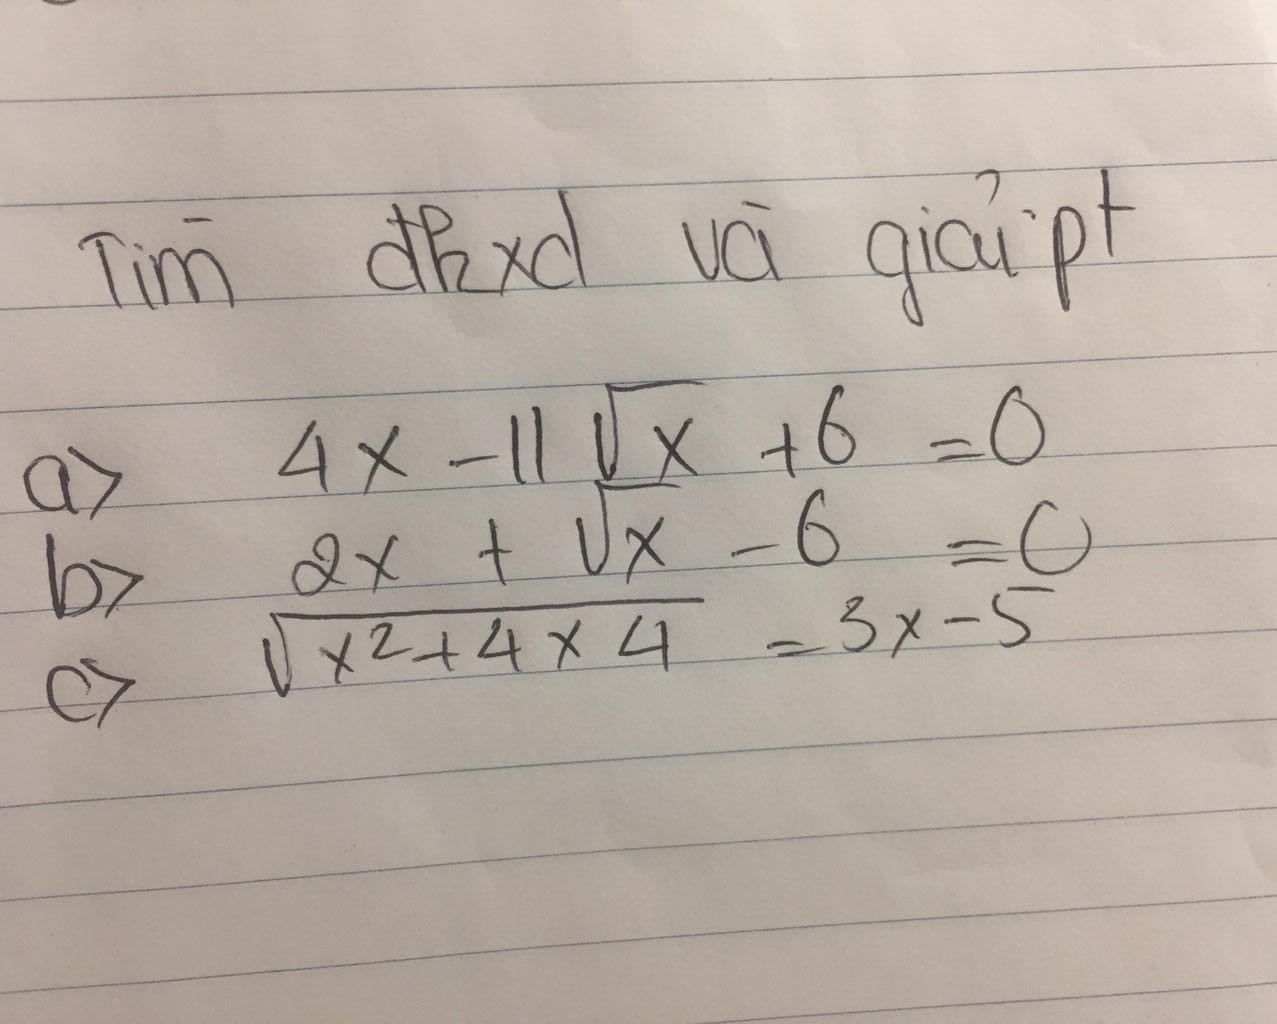 Tim đkxd và giải pt
a> 4x - 11√x + 6 = 0
b> 2x + √x - 6 = 0
c> √(x² + 4x 4) = 3x - 5